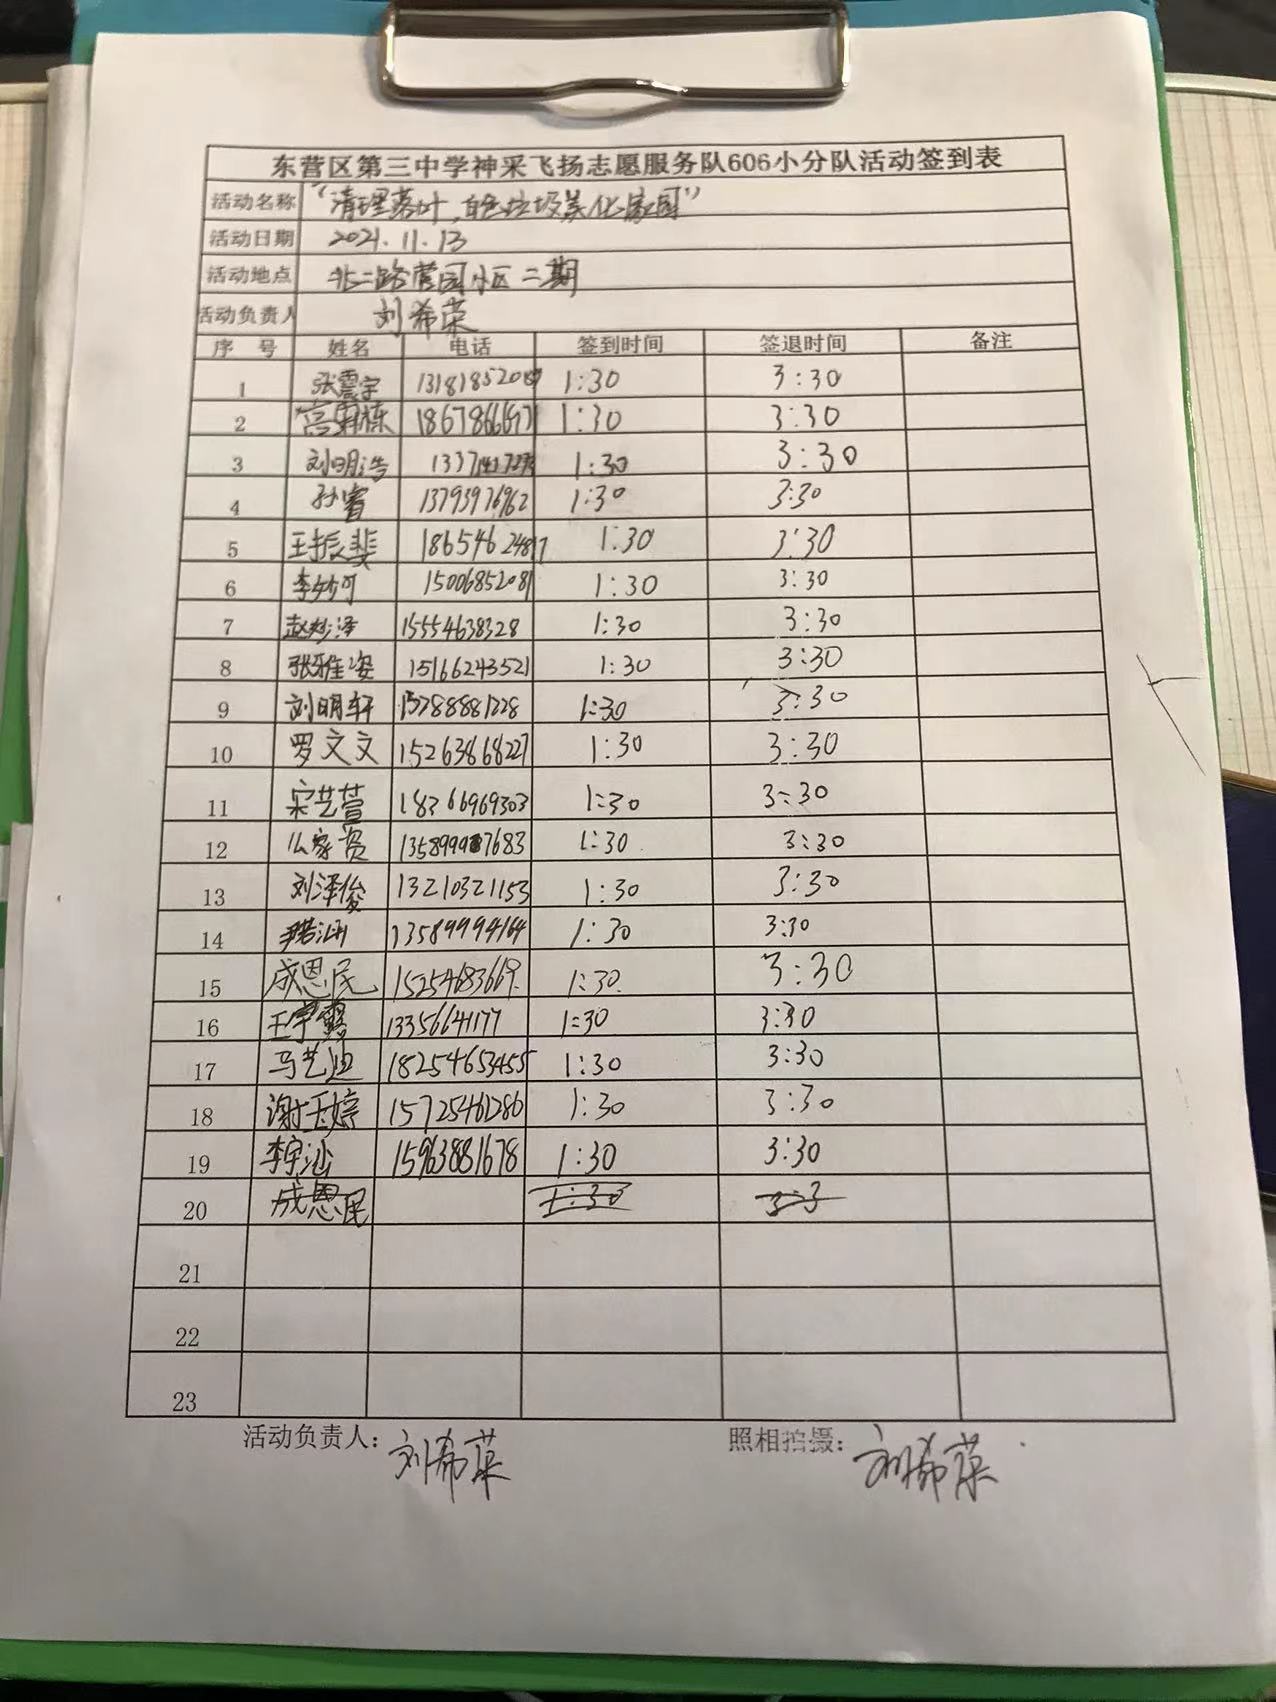 东营区第三中学神采飞扬志愿服务队606小分队活动签到表
活动名称 "清理落叶,白色垃圾美化家园"
活动日期 2021.11.13
活动地点 北二路营园小区二期
活动负责人 刘希荣
序号 姓名 电话 签到时间 签退时间 备注
1 张震宇 131818520 1:30 3:30
2 1:30 3:30
3 刘明浩 1:30 3:30
4 孙睿 13793976962 1:30 3:30
5 王振斐 18654624817 1:30 3:30
6 李妙可 15006852081 1:30 3:30
7 赵梦泽 15554638328 1:30 3:30
8 张雅姿 15166243521 1:30 3:30
9 刘明轩 15288881228 1:30 3:30
10 罗文文 15263868227 1:30 3:30
11 宋艺萱 18366969303 1:30 3:30
12 1:30 3:30
13 刘泽俊 13210321153 1:30 3:30
14 13589994164 1:30 3:30
15 成恩民 15254683669 1:30 3:30
16 王学露 13356641177 1:30 3:30
17 马艺迪 18254653455 1:30 3:30
18 谢玉婷 15725461286 1:30 3:30
19 李宇汕 15963881678 1:30 3:30
20 成恩民 1:30 3:3
21
22
23
活动负责人: 刘希荣 照相拍摄: 刘希荣